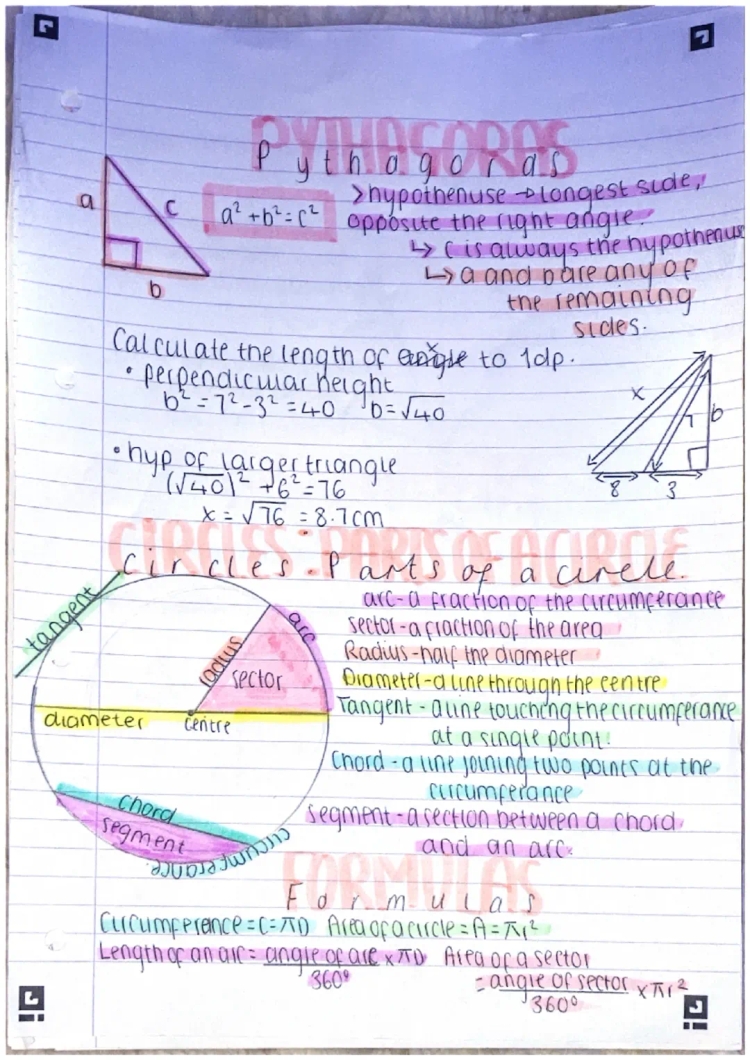 PYTHAGORAS
Pythagoras
a
c
b
a² + b² = c²
>hypothenuse → longest side,
opposite the right angle.
↳ c is always the hypothenus
↳ a and b are any of
the remaining
sides.
Calculate the length of x to 1dp.
• perpendicular height
b² = 7² - 3² = 40 b = √40
• hyp of larger triangle
(√40)² + 6² = 76
x = √76 = 8.7cm
x
7
b
8
3
CIRCLES: PARTS OF A CIRCLE
Circles: Parts of a circle.
tangent
radius
arc
sector
diameter
centre
chord
segment
circumferance
arc - a fraction of the circumferance
sector - a fraction of the area
Radius - half the diameter
Diameter - a line through the centre
Tangent - a line touching the circumferance
at a single point.
Chord - a line joining two points at the
circumferance
segment - a section between a chord
and an arc.
FORMULAS
Formulas
Circumference = C = πD Area of a circle = A = πr²
Length of an arc = angle of arc / 360° × πD
Area of a sector
= angle of sector / 360° × πr²